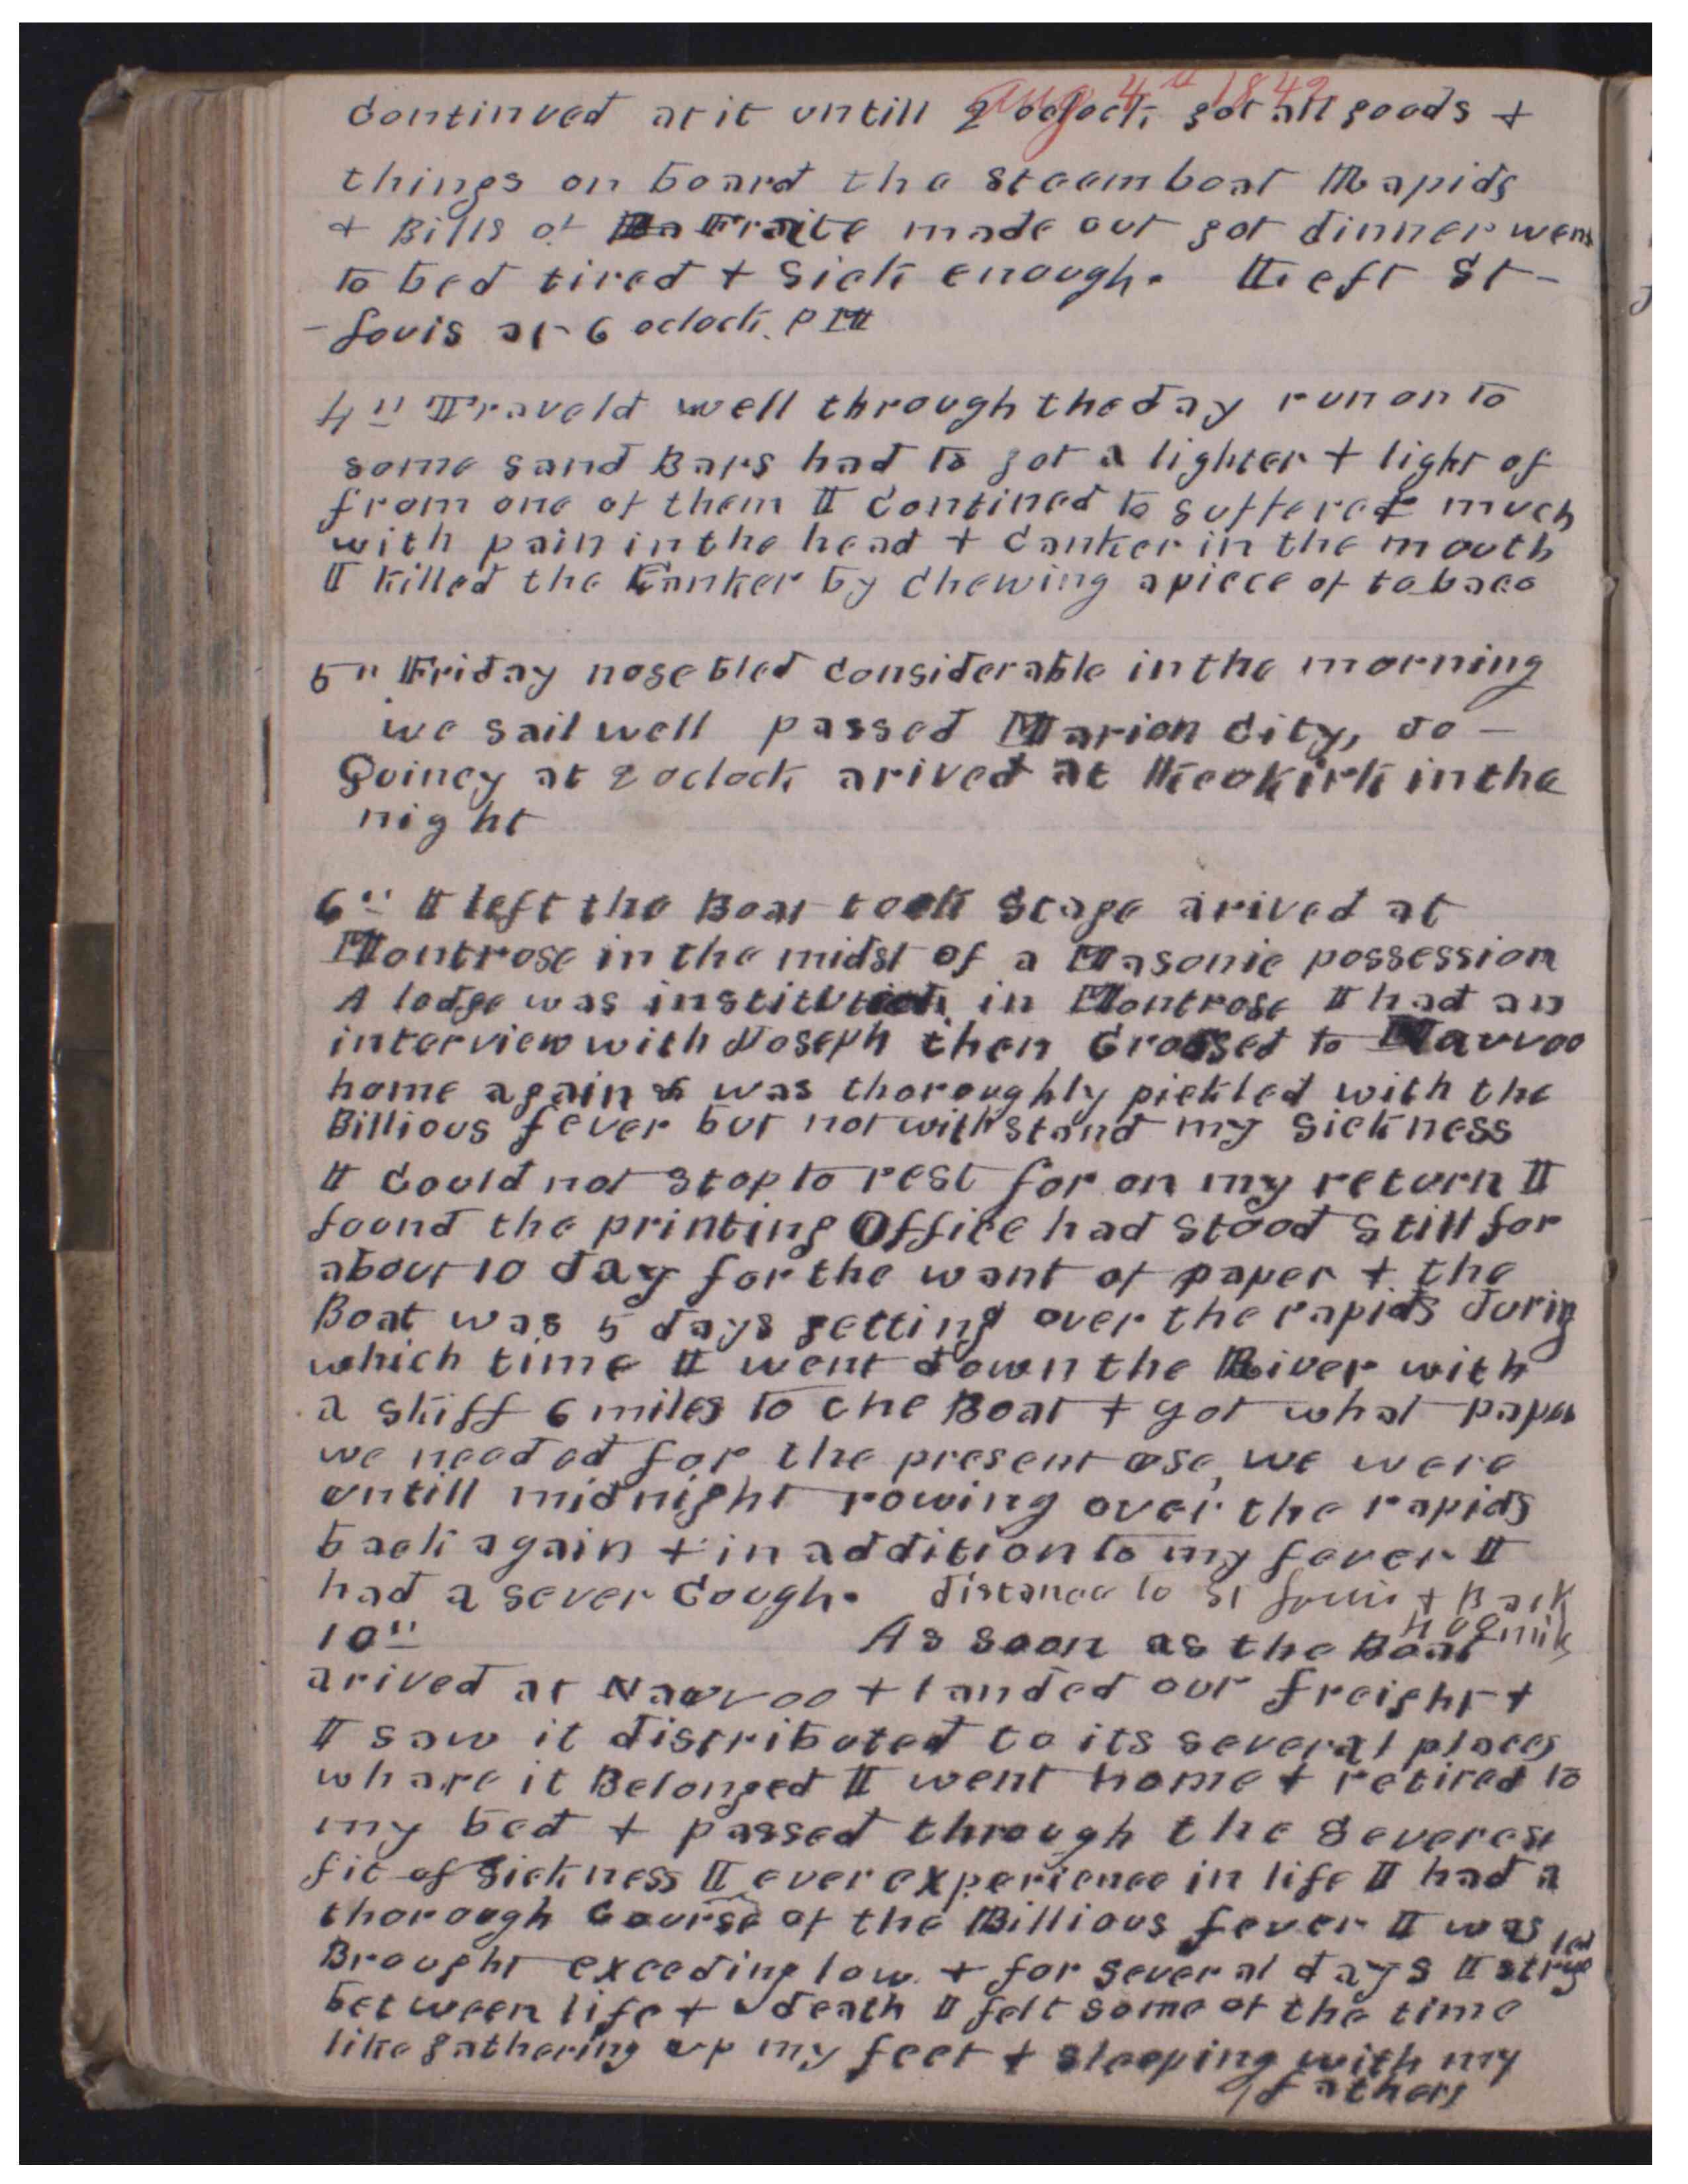 Aug 4th 1842
Continued at it untill 2 oclock, got all goods +
things on board the Steemboat Rapids
+ Bills of Fraite made out got dinner went
to bed tired + Sick enough. Left St-
-Louis at 6 oclock. P M
4th Traveld well through the day run on to
some sand Bars had to got a lighter + light of
from one of them I contined to suffered much
with pain in the head + Canker in the mouth
I killed the Canker by chewing a piece of tobaco
5th Friday nose bled considerable in the morning
we sail well passed Marion City, do-
Quincy at 2 oclock arived at Keokirk in the
night
6th I left the Boat took Stage arived at
Montrose in the midst of a Masonic possession
A lodge was in Montrose I had an
interview with Joseph then Crossed to Nauvoo
home again & was thoroughly pickled with the
Billious fever but notwithstand my Sickness
I Could not Stop to rest for on my return I
found the printing Office had stood still for
about 10 day for the want of paper + the
Boat was 5 days getting over the rapids durig
which time I went down the River with
a skiff 6 miles to the Boat + got what paper
we needed for the present use, we were
untill midnight rowing over the rapids
back again + in addition to my fever I
had a sever Cough. distance to St Louis + Back
400 mils
10th As soon as the Boat
arived at Nauvoo + landed our freight +
I saw it distributed to its several places
whare it Belonged I went home + retired to
my bed + passed through the Severest
fit of Sickness I ever experience in life I had a
thorough Course of the Billious fever I was
Brought exceeding low + for several days I strugled
between life + death I felt some of the time
like gathering up my feet + sleeping with my
fathers